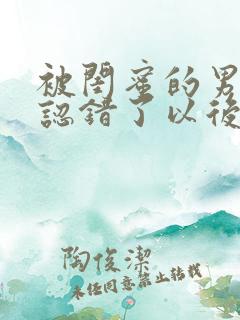 被閨蜜的男
認錯了以後
陶俊潔
未经同意禁止转载